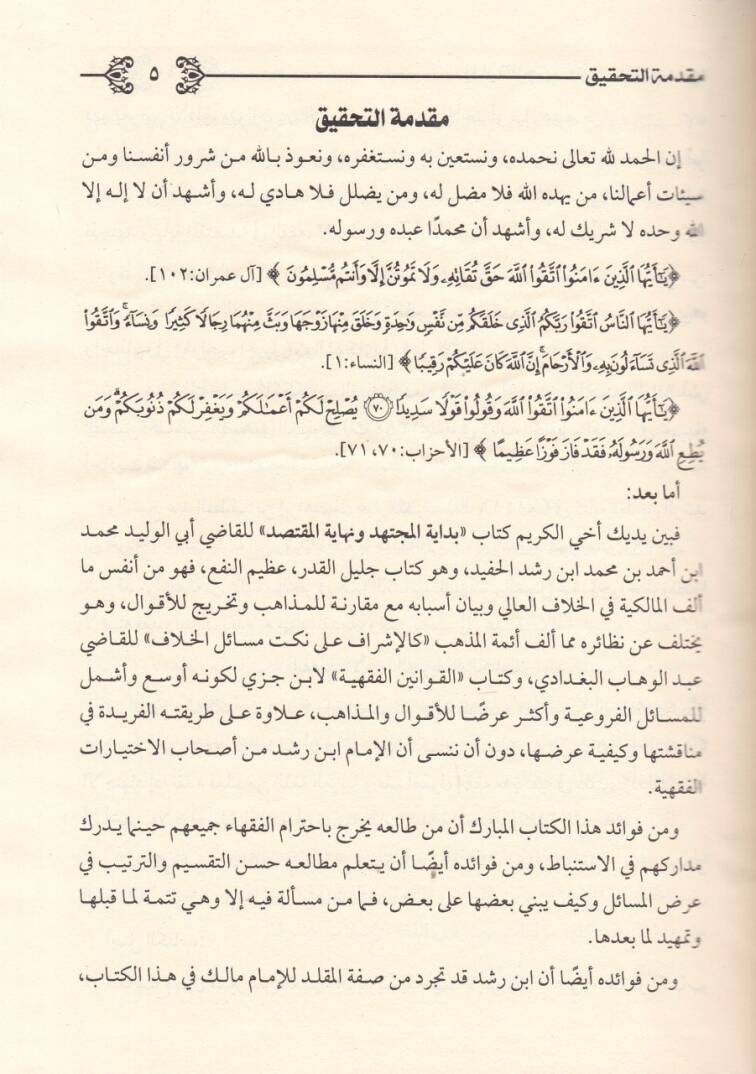 مقدمة التحقيق ٥
مقدمة التحقيق
إن الحمد لله تعالى نحمده، ونستعين به ونستغفره، ونعوذ بالله من شرور أنفسنا ومن
سيئات أعمالنا، من يهده الله فلا مضل له، ومن يضلل فلا هادي له، وأشهد أن لا إله إلا
الله وحده لا شريك له، وأشهد أن محمدًا عبده ورسوله.
﴿يَٰٓأَيُّهَا ٱلَّذِينَ ءَامَنُوا۟ ٱتَّقُوا۟ ٱللَّهَ حَقَّ تُقَاتِهِۦ وَلَا تَمُوتُنَّ إِلَّا وَأَنتُم مُّسْلِمُونَ﴾ [آل عمران:١٠٢].
﴿يَٰٓأَيُّهَا ٱلنَّاسُ ٱتَّقُوا۟ رَبَّكُمُ ٱلَّذِى خَلَقَكُم مِّن نَّفْسٍ وَٰحِدَةٍ وَخَلَقَ مِنْهَا زَوْجَهَا وَبَثَّ مِنْهُمَا رِجَالًا كَثِيرًا وَنِسَآءً ۚ وَٱتَّقُوا۟
ٱللَّهَ ٱلَّذِى تَسَآءَلُونَ بِهِۦ وَٱلْأَرْحَامَ ۚ إِنَّ ٱللَّهَ كَانَ عَلَيْكُمْ رَقِيبًا﴾ [النساء:١].
﴿يَٰٓأَيُّهَا ٱلَّذِينَ ءَامَنُوا۟ ٱتَّقُوا۟ ٱللَّهَ وَقُولُوا۟ قَوْلًا سَدِيدًا ٧٠ يُصْلِحْ لَكُمْ أَعْمَٰلَكُمْ وَيَغْفِرْ لَكُمْ ذُنُوبَكُمْ ۗ وَمَن
يُطِعِ ٱللَّهَ وَرَسُولَهُۥ فَقَدْ فَازَ فَوْزًا عَظِيمًا﴾ [الأحزاب:٧٠، ٧١].
أما بعد:
فبين يديك أخي الكريم كتاب «بداية المجتهد ونهاية المقتصد» للقاضي أبي الوليد محمد
ابن أحمد بن محمد ابن رشد الحفيد، وهو كتاب جليل القدر، عظيم النفع، فهو من أنفس ما
ألف المالكية في الخلاف العالي وبيان أسبابه مع مقارنة للمذاهب وتخريج للأقوال، وهو
يختلف عن نظائره مما ألف أئمة المذهب «كالإشراف على نكت مسائل الخلاف» للقاضي
عبد الوهاب البغدادي، وكتاب «القوانين الفقهية» لابن جزي لكونه أوسع وأشمل
للمسائل الفروعية وأكثر عرضًا للأقوال والمذاهب، علاوة على طريقته الفريدة في
مناقشتها وكيفية عرضها، دون أن ننسى أن الإمام ابن رشد من أصحاب الاختيارات
الفقهية.
ومن فوائد هذا الكتاب المبارك أن من طالعه يخرج باحترام الفقهاء جميعهم حينما يدرك
مداركهم في الاستنباط، ومن فوائده أيضًا أن يتعلم مطالعه حسن التقسيم والترتيب في
عرض المسائل وكيف يبني بعضها على بعض، فما من مسألة فيه إلا وهي تتمة لما قبلها
وتمهيد لما بعدها.
ومن فوائده أيضًا أن ابن رشد قد تجرد من صفة المقلد للإمام مالك في هذا الكتاب،